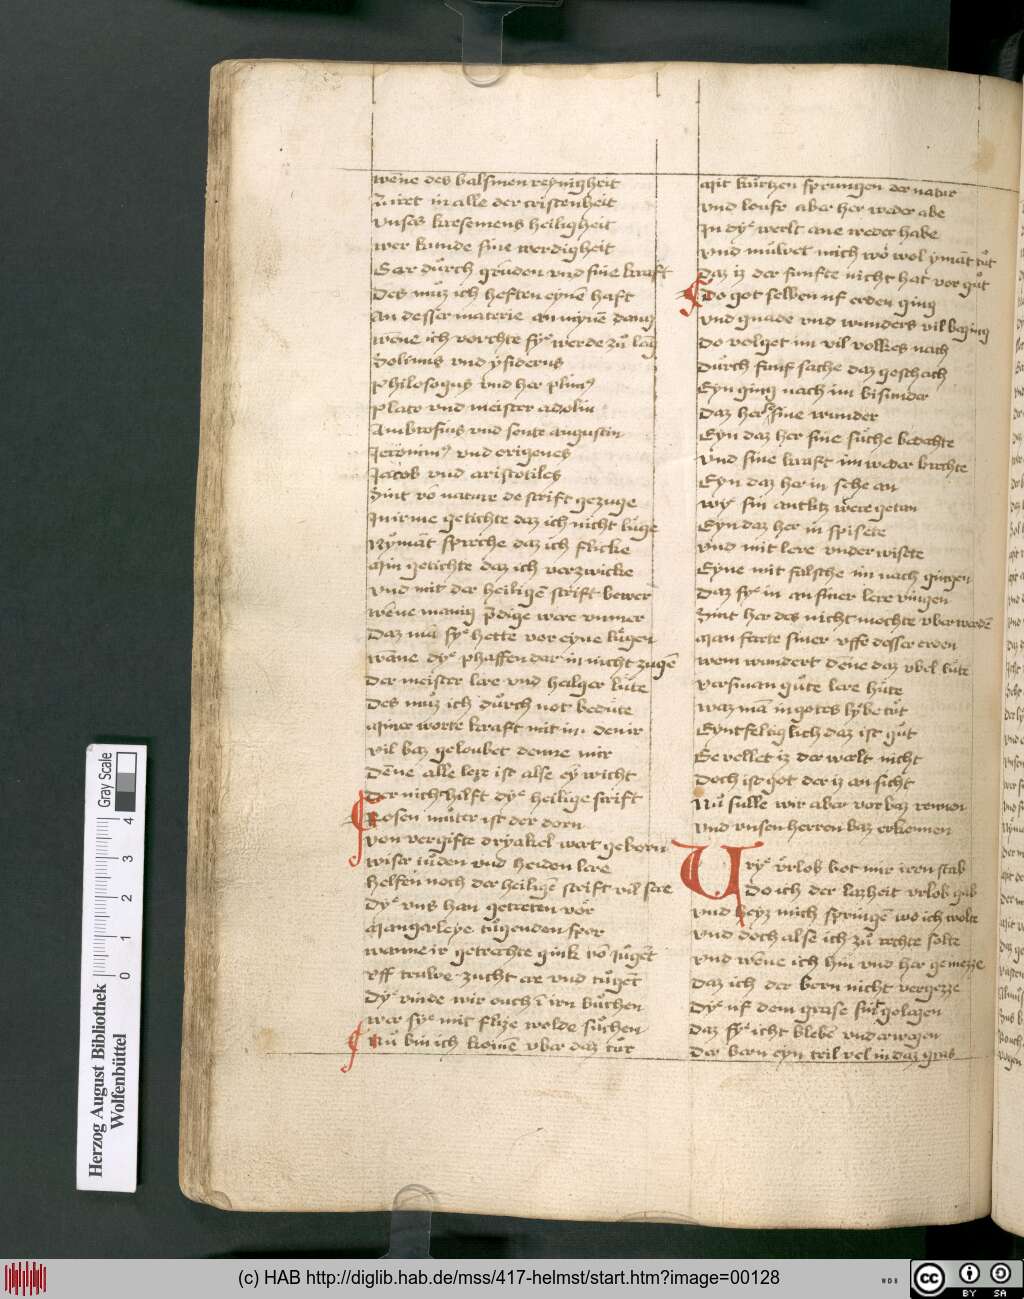 wene des balsmen reynigheit
wret in alle der cristenheit
vnses kresemens heiligheit
wer kunde sine werdigheit
Gar důrch grůnden vnd sine kraft
Des můz ich heften eynē haft
an desser materie an mynē dang
wene ich vorchte syͤ werde zů lang
Solinus vnd ysiderus
philosogus vnd her plini⁹
plato vnd meister
Ambrosius vnd sente augustin
Jeronim⁹ vnd origenes
Jacob vnd aristotiles
Sint vō nature de scrift gezuge
In irme getichte daz ich nicht lůge
Nymāt spreche daz ich flicke
Min getichte daz ich vorzwicke
vnd mit der heiligē scrift bewer
wene manig p̄dige were vnmer
Daz mā syͤ hette vor eyne lůgen
wāne dyͤ phaffen dar in nicht zugē
Der meister lere vnd heilger lůte
Des můz ich důrch not bedute
Miner worte kraft mit im
vil baz geloubet denne mir
Dēne alle lere ist alse ey wicht
Der nicht hilft dyͤ heilige scrift
Rosen můter ist der dorn
von vergifte dryakel wert geborn
wiser iuden vnd heiden lere
Helfen noch der heiligē scrift vil sere
Dyͤ vns han getreten vor
Mangerleye tugenden spor
wanne ir getrechte gink vō iůgēt
vff trůwe zucht ere vnd tůgēt
Dyͤ vinde wir ouch ī irn bůchen
wer syͤ mit flize wolde sůchen
Nů bin ich komē vber daz tor
Mit kurtzen sprungen der natur
vnd loufe aber her weder abe
In dyͤ werlt ane weder habe
vnd můwet mich wo wol ymāt tůt
Daz iz der funfte nicht hat vor gůt
Do got selben uf erden ging
vnd gnade vnd wunders vil beging
Do volget im vil volkes nach
důrch funf sache daz geschach
Eyn ging nach im bisunder
Daz her sine wunder
Eyn daz her sine sůche bedechte
vnd sine kraft im weder brechte
Eyn daz her in sehe an
wyͤ sin antlitz were getan
Eyn daz her in spisete
vnd mit lere vnderwisete
Eyne mit falsche im nach gingen
Daz syͤ in an siner lere vingen
Sint her des nicht mochte vber werdē
Man serte siner vffe desser erden
wem wundert dēne daz vbel lute
versman gůte lere hůte
waz mā in gotes lybe tůt
Eyntfeltiglich daz ist gůt
Gevellet iz der werlt nicht
Doch ist got der iz an sicht
Nů sulle wir aber vor baz rennen
vnd vnsen herren baz erkennen
Vryͤ vrlob bot mir iren stab
Do ich der lazheit vrlob gab
vnd heyz mich springē wo ich wolte
vnd doch alse ich zů rechte solte
vnd wene ich hin vnd her gemezze
Daz ich der bern nicht vergezze
Dyͤ uf dem grase sint gelegen
Daz syͤ icht blebē vnderwegen
Der bern eyn teil vel in daz gras
Gray Scale
4
3
2
1
0
Herzog August Bibliothek
Wolfenbüttel
(c) HAB http://diglib.hab.de/mss/417-helmst/start.htm?image=00128
WDB
cc
BY
SA